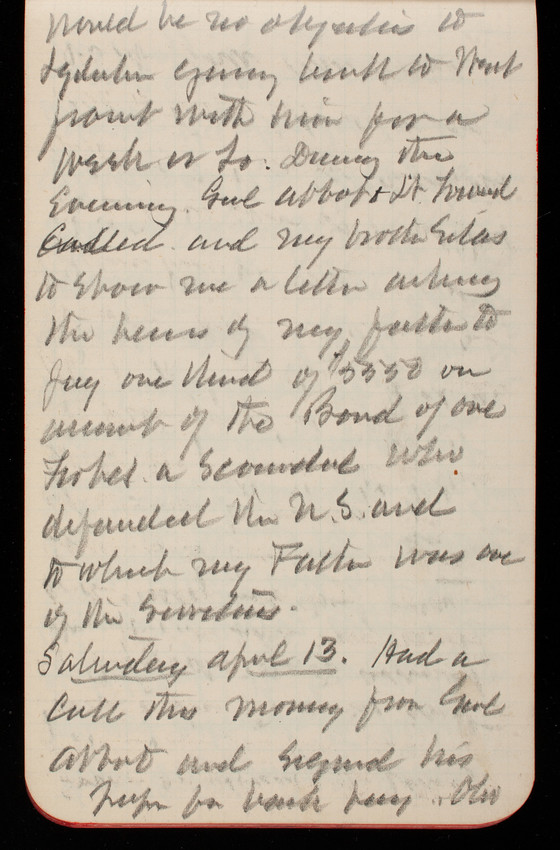 would be no objection to
going back to West
point with him for a
week or so. During the
Evening. Genl Abbot & Lt
Called and my brother Silas
to show me a letter asking
the heirs of my father to
pay one third of $5550 on
account of the Bond of one
a Scoundrel who
defrauded the U.S. and
to which my Father was one
of the Securities.
Saturday April 13. Had a
call this morning from Genl
Abbot and signed his
for back pay. Also